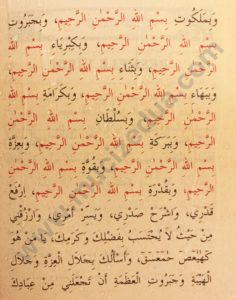 وَبِمَلَكُوتِ بِسْمِ اللهِ الرَّحْمٰنِ الرَّحِيمِ، وَبِجَبَرُوتِ
بِسْمِ اللهِ الرَّحْمٰنِ الرَّحِيمِ، وَبِكِبْرِيَاءِ بِسْمِ اللهِ
الرَّحْمٰنِ الرَّحِيمِ، وَبِثَنَاءِ بِسْمِ اللهِ الرَّحْمٰنِ الرَّحِيمِ،
وَبِبَهَاءِ بِسْمِ اللهِ الرَّحْمٰنِ الرَّحِيمِ، وَبِكَرَامَةِ بِسْمِ
اللهِ الرَّحْمٰنِ الرَّحِيمِ، وَبِسُلْطَانِ بِسْمِ اللهِ الرَّحْمٰنِ
الرَّحِيمِ، وَبِبَرَكَةِ بِسْمِ اللهِ الرَّحْمٰنِ الرَّحِيمِ، وَبِعِزَّةِ
بِسْمِ اللهِ الرَّحْمٰنِ الرَّحِيمِ، وَبِقُوَّةِ بِسْمِ اللهِ الرَّحْمٰنِ
الرَّحِيمِ، وَبِقُدْرَةِ بِسْمِ اللهِ الرَّحْمٰنِ الرَّحِيمِ، اِرْفَعْ
قَدْرِي، وَاشْرَحْ صَدْرِي، وَيَسِّرْ أَمْرِي، وَارْزُقْنِي
مِنْ حَيْثُ لَا يُحْتَسَبُ بِفَضْلِكَ وَكَرَمِكَ، يَا مَنْ هُوَ
كۤهٰيٰعۤصۤ حٰمۤعۤسۤقۤ، وَأَسْأَلُكَ بِجَلَالِ الْعِزَّةِ وَجَلَالِ
الْهَيْبَةِ وَجَبَرُوتِ الْعَظَمَةِ أَنْ تَجْعَلَنِي مِنْ عِبَادِكَ